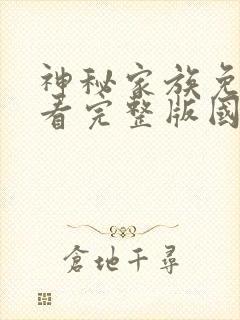 神秘家族免
看完整版国
倉地千尋